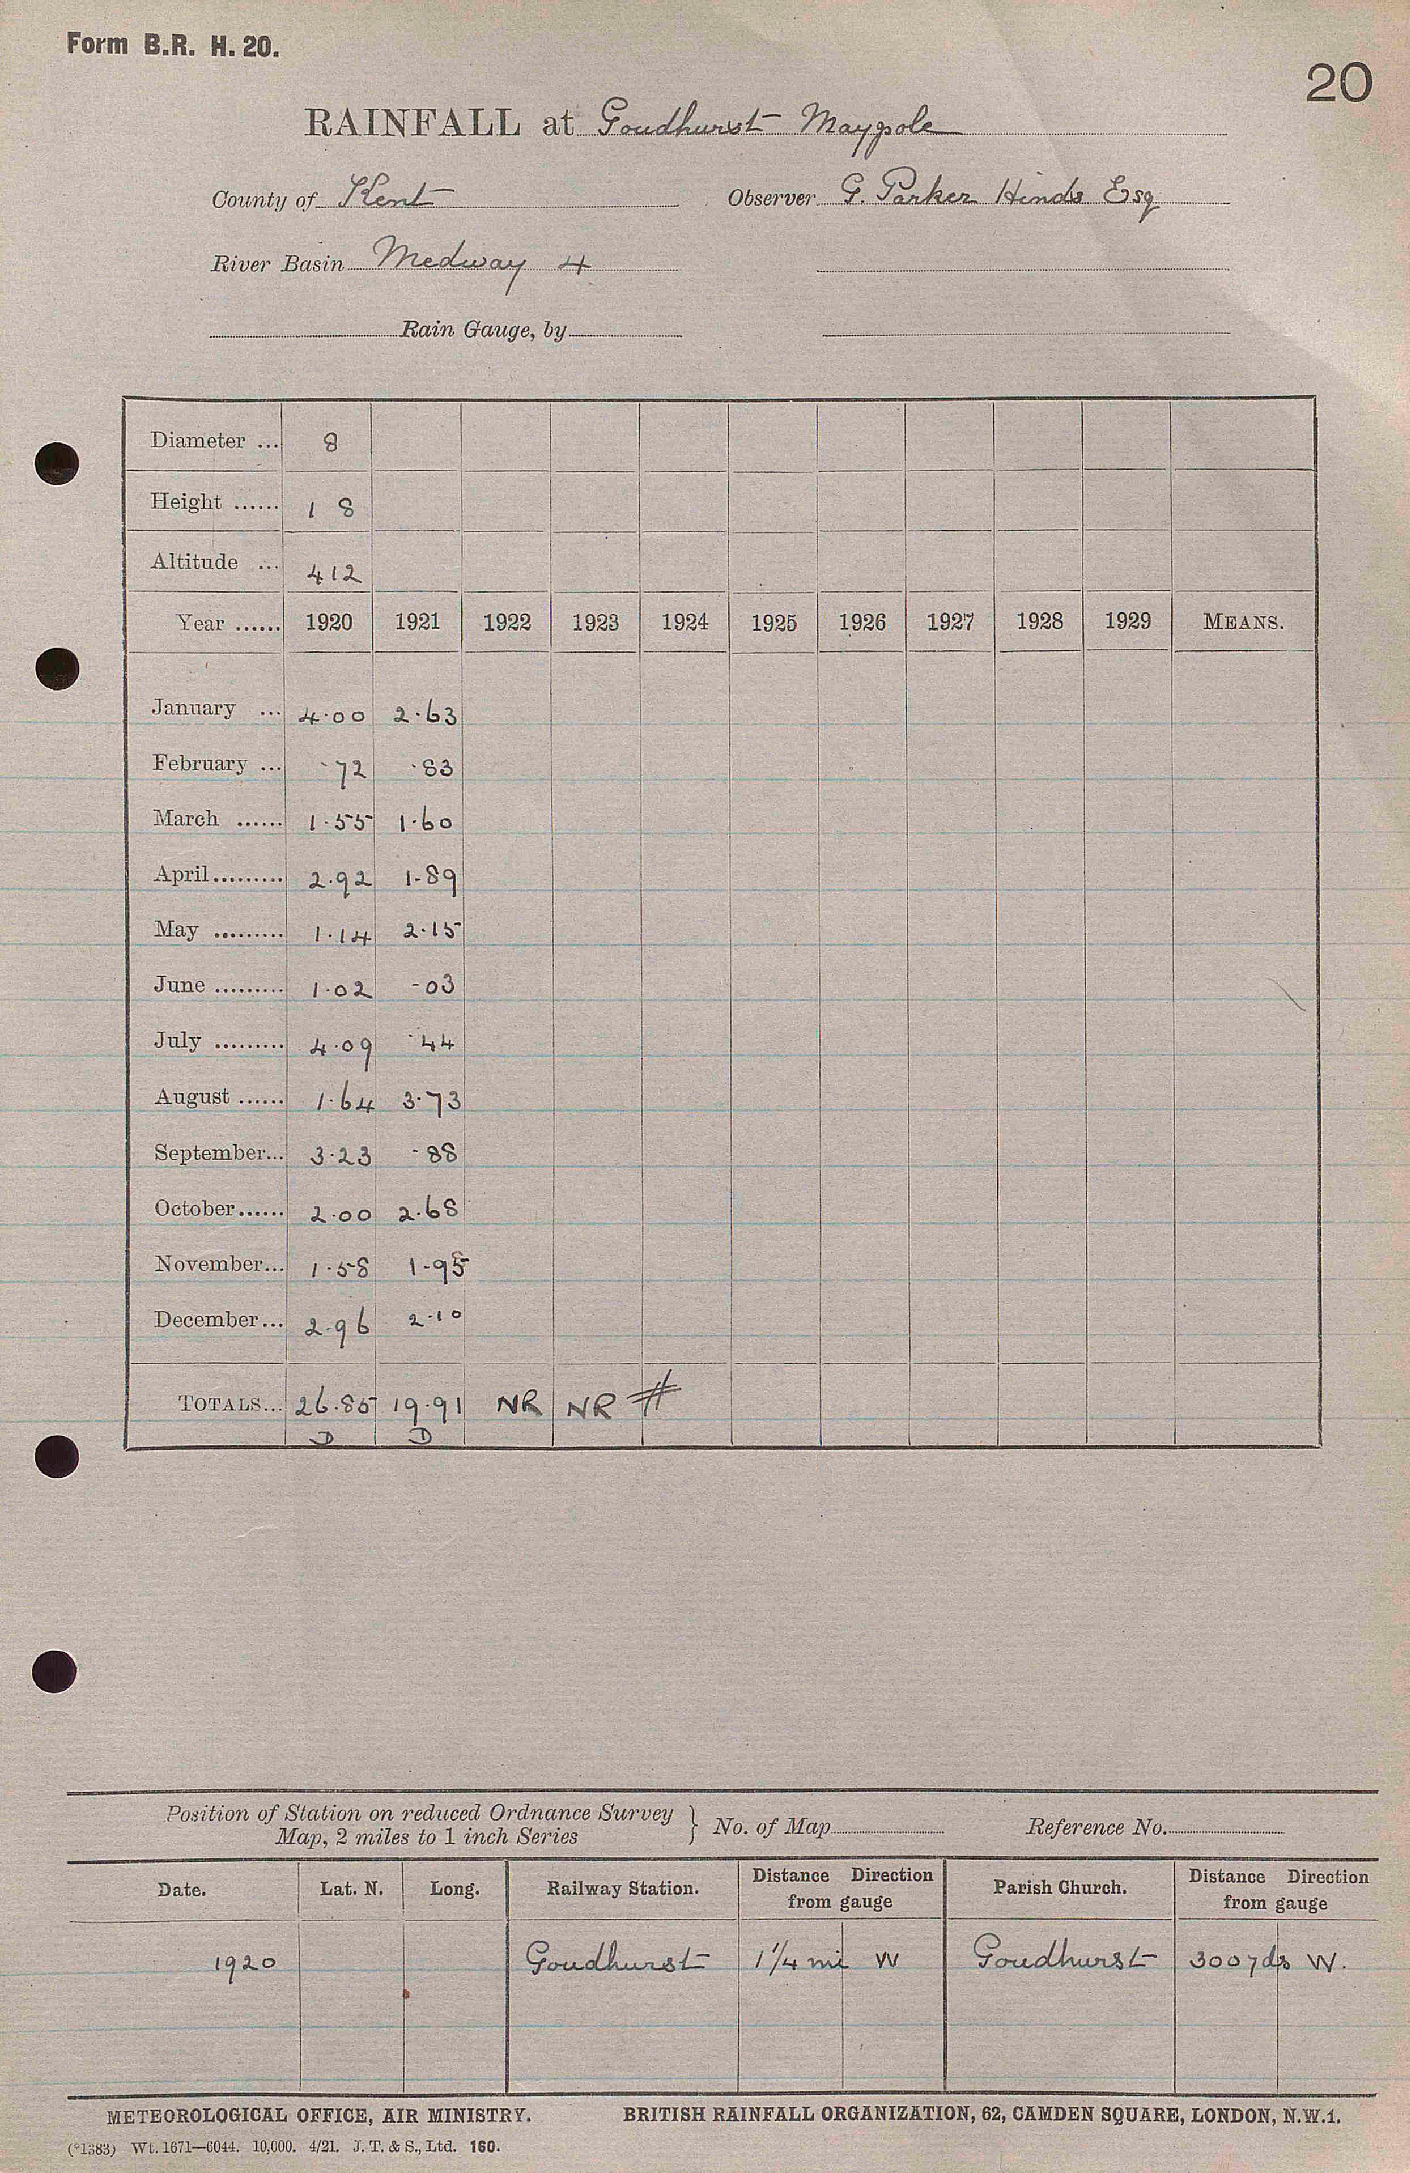 Form B.R. H. 20.
20
RAINFALL at Goudhurst Maypole
County of Kent Observer G. Parker Hinds Esq
River Basin Medway 4
Rain Gauge, by
Diameter ... 8
Height ...... 1 8
Altitude ... 412
Year ...... 1920 1921 1922 1923 1924 1925 1926 1927 1928 1929 MEANS.
January ... 4.00 2.63
February ... .72 .83
March ...... 1.55 1.60
April......... 2.92 1.89
May ......... 1.14 2.15
June ......... 1.02 .03
July ......... 4.09 .44
August ...... 1.64 3.73
September... 3.23 .88
October...... 2.00 2.68
November... 1.58 1.95
December... 2.96 2.10
TOTALS... 26.85 19.91 NR NR #
D D
Position of Station on reduced Ordnance Survey
Map, 2 miles to 1 inch Series } No. of Map Reference No.
Date. Lat. N. Long. Railway Station. Distance Direction from gauge Parish Church. Distance Direction from gauge
1920 Goudhurst 1 1/4 mi W Goudhurst 300 yds W.
METEOROLOGICAL OFFICE, AIR MINISTRY. BRITISH RAINFALL ORGANIZATION, 62, CAMDEN SQUARE, LONDON, N.W.1.
(*1383) Wt. 1671—6044. 10,000. 4/21. J. T. & S., Ltd. 160.